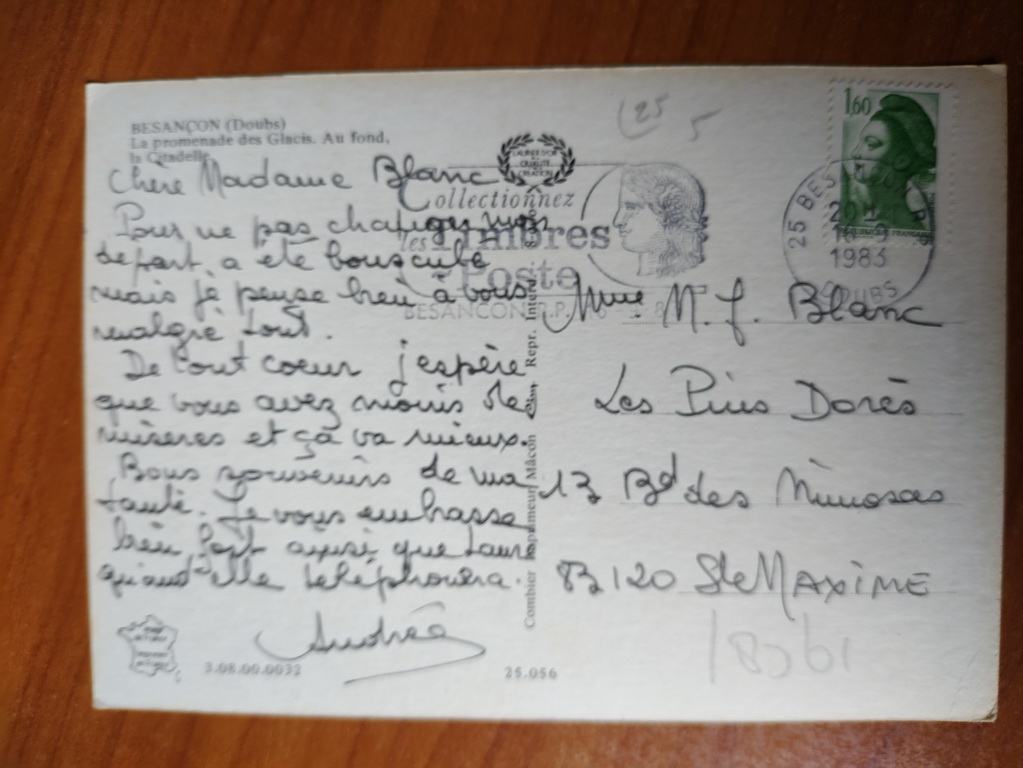 BESANÇON (Doubs)
La promenade des Glacis. Au fond,
la Citadelle
Chère Madame Blanc
Pour ne pas changer mon
départ a été bousculé
mais je pense bien à vous
malgré tout.
De tout coeur j'espère
que vous avez moins de
misères et ça va mieux.
Bons souvenirs de ma
tante. Je vous embrasse
bien fort ainsi que
quand elle téléphonera.
Andrée
3.08.00.0032
25.056
Combier Imprimeur Mâcon
Repr. Interd.
Collectionnez
les Timbres
Poste
BESANÇON R.P.
25 5
1,60
25 BES
16-9
1983
DOUBS
Mme M. J. Blanc
Les Pins Dorés
13 Bd des Mimosas
83120 Ste MAXIME